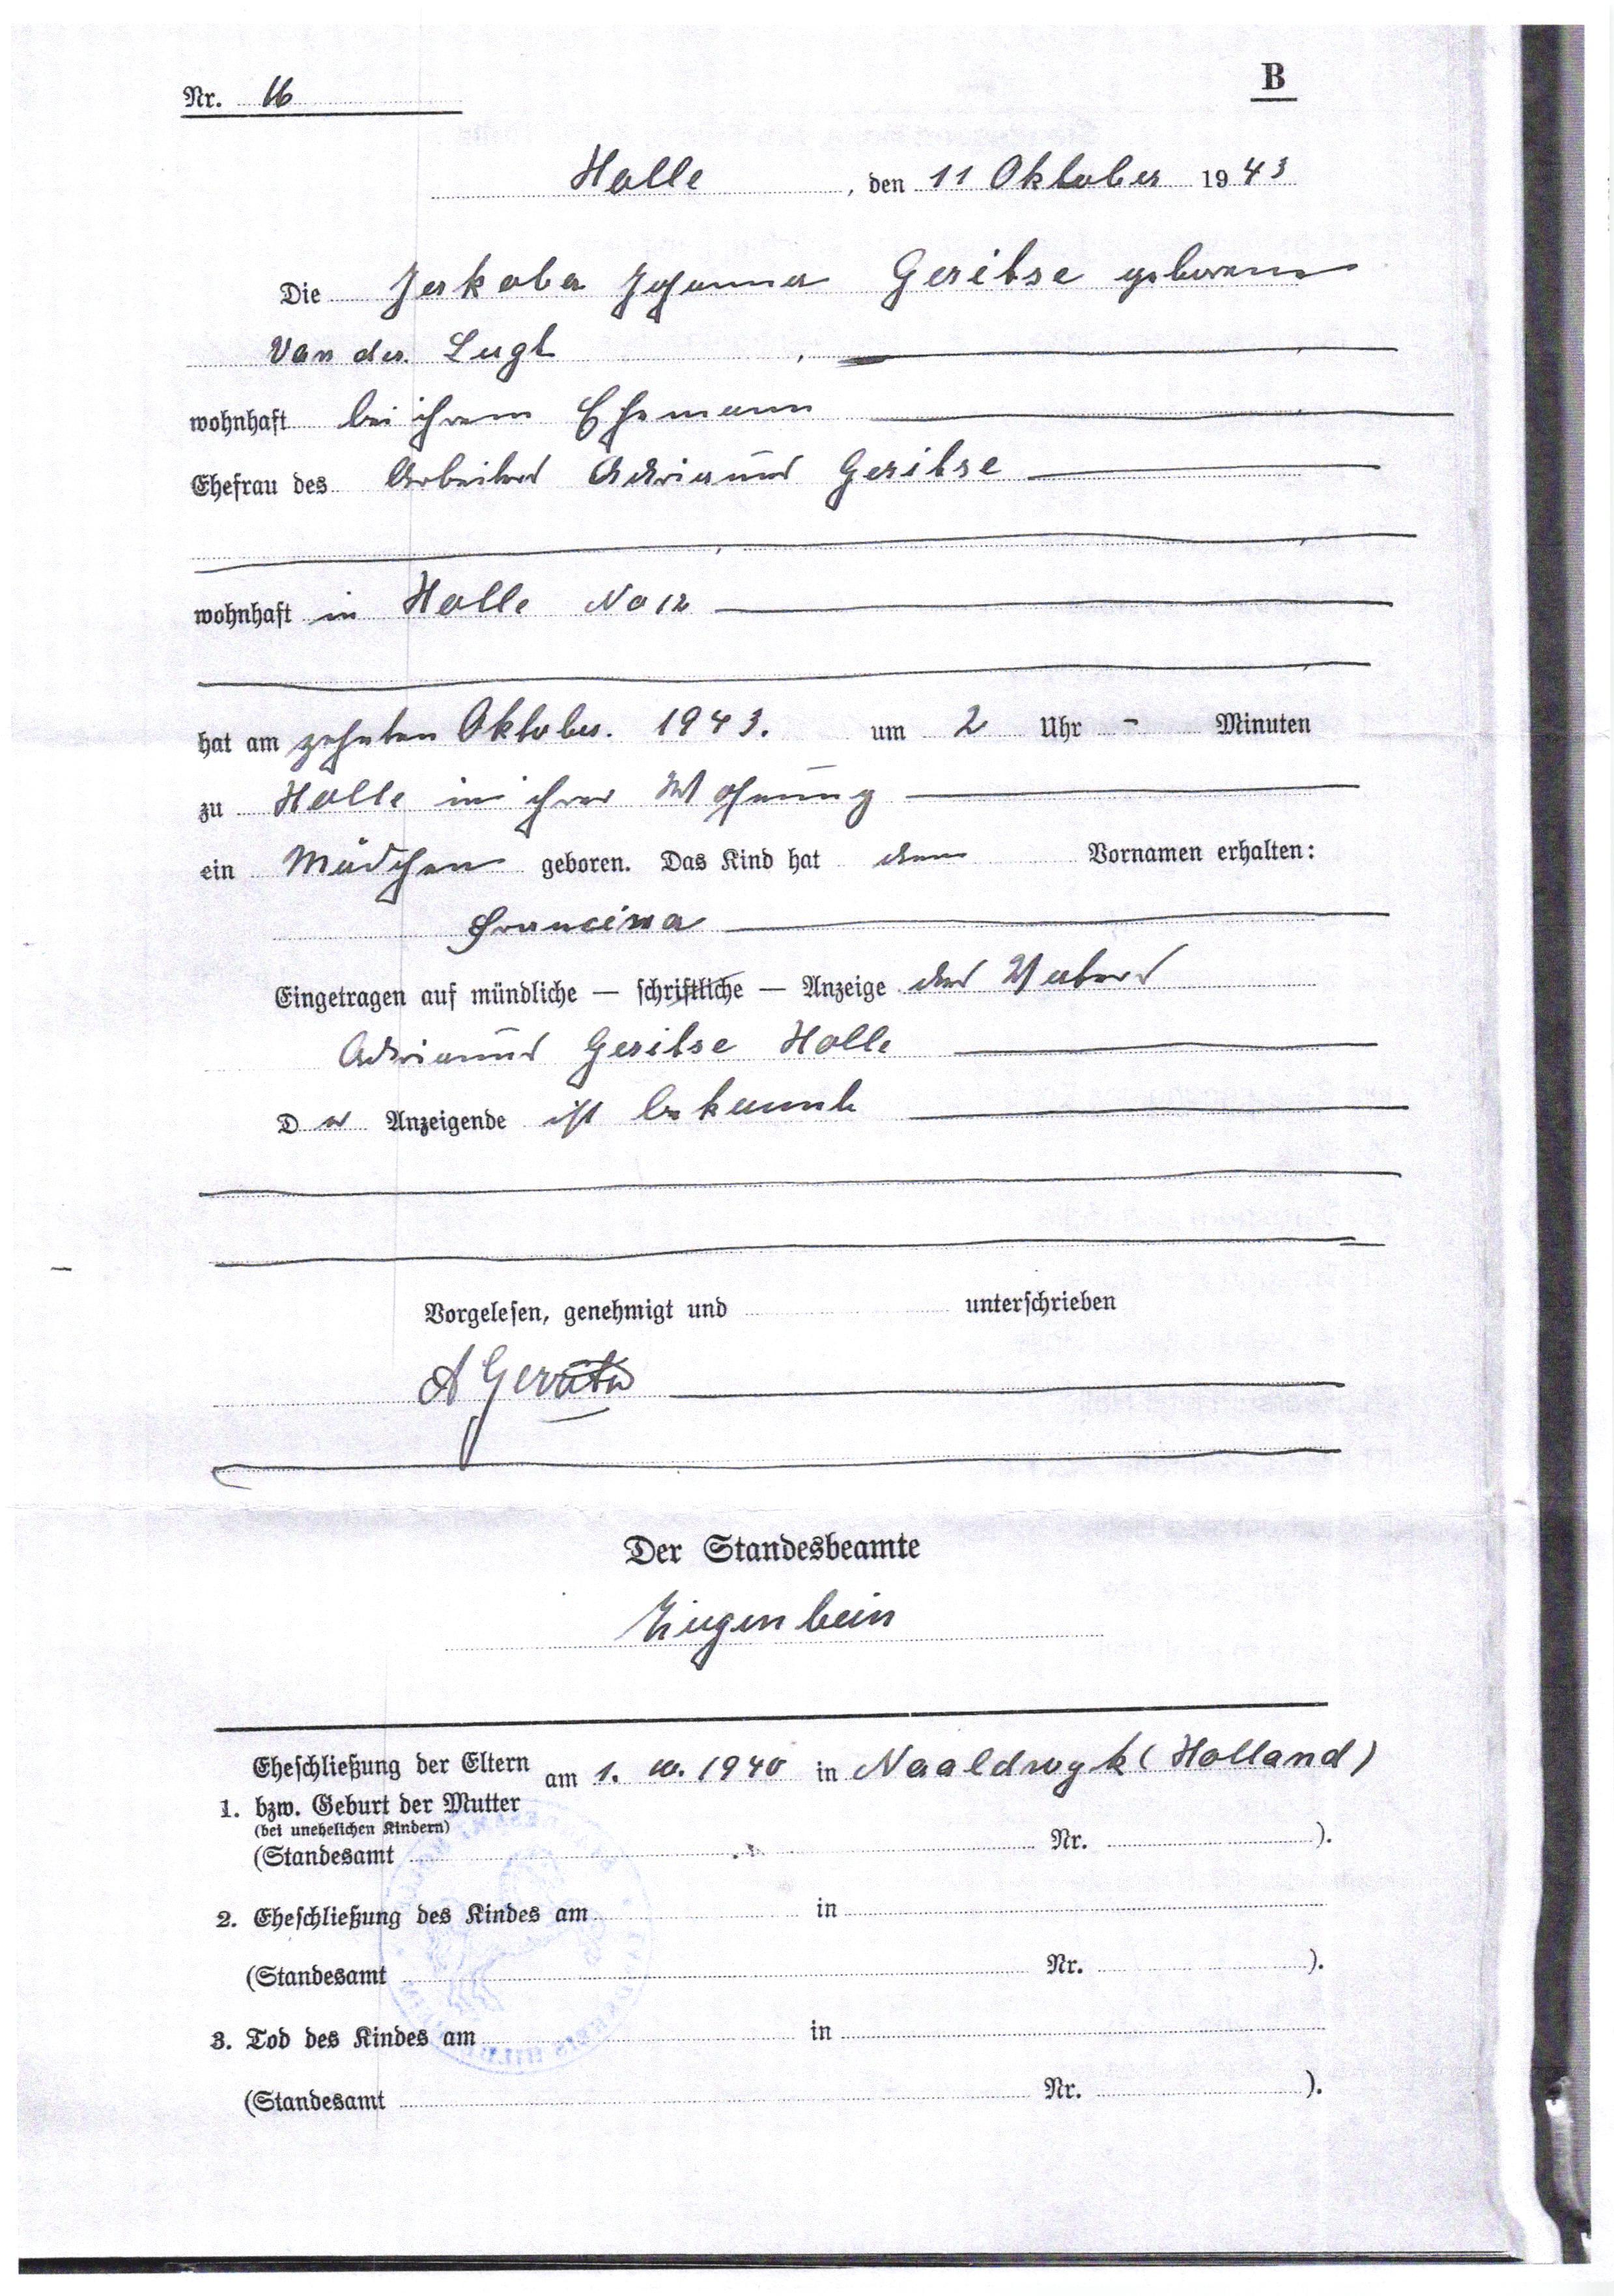 Nr. 16
B
Holle, den 11 Oktober 1943
Die Jakoba Johanna Geritse geborene
Van der Lugt
wohnhaft bei ihrem Ehemann
Ehefrau des Arbeiters Adrianus Geritse
wohnhaft in Holle No 12
hat am zehnten Oktober. 1943. um 2 Uhr - Minuten
zu Holle in ihrer Wohnung
ein Mädchen geboren. Das Kind hat den Vornamen erhalten:
Francina
Eingetragen auf mündliche — schriftliche — Anzeige des Vaters
Adrianus Geritse Holle
Der Anzeigende ist bekannt
Vorgelesen, genehmigt und unterschrieben
A Gerritse
Der Standesbeamte
Ziegenbein
Eheschließung der Eltern am 1. 1940 in Naaldwyk (Holland)
1. bzw. Geburt der Mutter
(bei unehelichen Kindern)
(Standesamt Nr. ).
2. Eheschließung des Kindes am in
(Standesamt Nr. ).
3. Tod des Kindes am in
(Standesamt Nr. ).